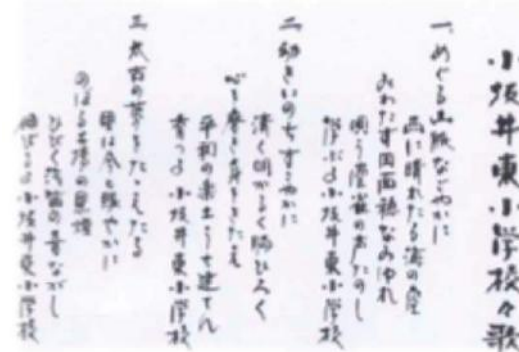 小坂井東小学校々歌
一、めぐる山脈なごやかに
西に晴れたる海の空
みわたす田面穂なみゆれ
唄う雲雀の声たのし
学ぶよ小坂井東小学校
二、幼きいのちすこやかに
清く明かるく胸ひろく
心を磨き身をきたえ
平和の楽土うち建てん
育つよ小坂井東小学校
三、太古の夢をたたえたる
里は今も賑やかに
のぼる古墳の
ひびく汽笛の音ながし
伸びるよ小坂井東小学校